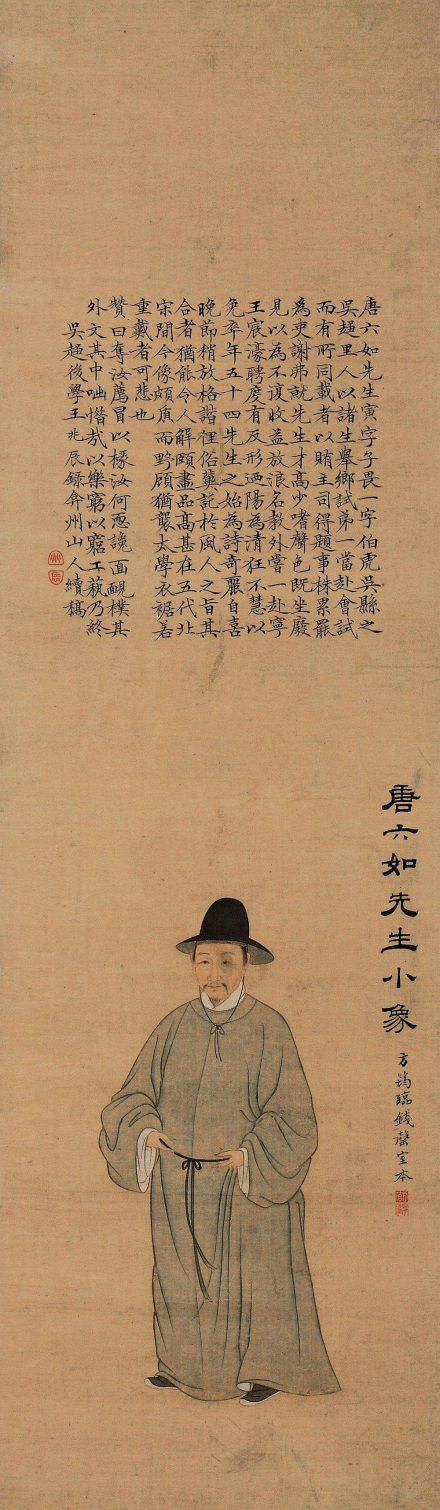 唐六如先生寅字子畏一字伯虎吳縣之
吳趨里人以諸生舉鄉試第一當赴會試
而有所同載者以賄主司得題事株累罷
為吏謝弗就先生才高少嗜聲色既坐廢
見以為不復收益放浪名教外嘗一赴寧
王宸濠聘度有反形迺陽為清狂不慧以
免卒年五十四先生之始為詩奇麗自喜
晚節稍放格諧俚俗冀託於風人之旨其
合者猶能令人解頤畫品高甚在五代北
宋間今像頗而野顧猶襲太學衣裾若
重戴者可悲也
贊曰奪汝薦冒以椽汝何面樸其
外文其中咄憯哉以樂窮以窮工藝乃終
吳趨後學王兆辰錄弇州山人續稿
唐六如先生小象
方筠臨錢磬室本